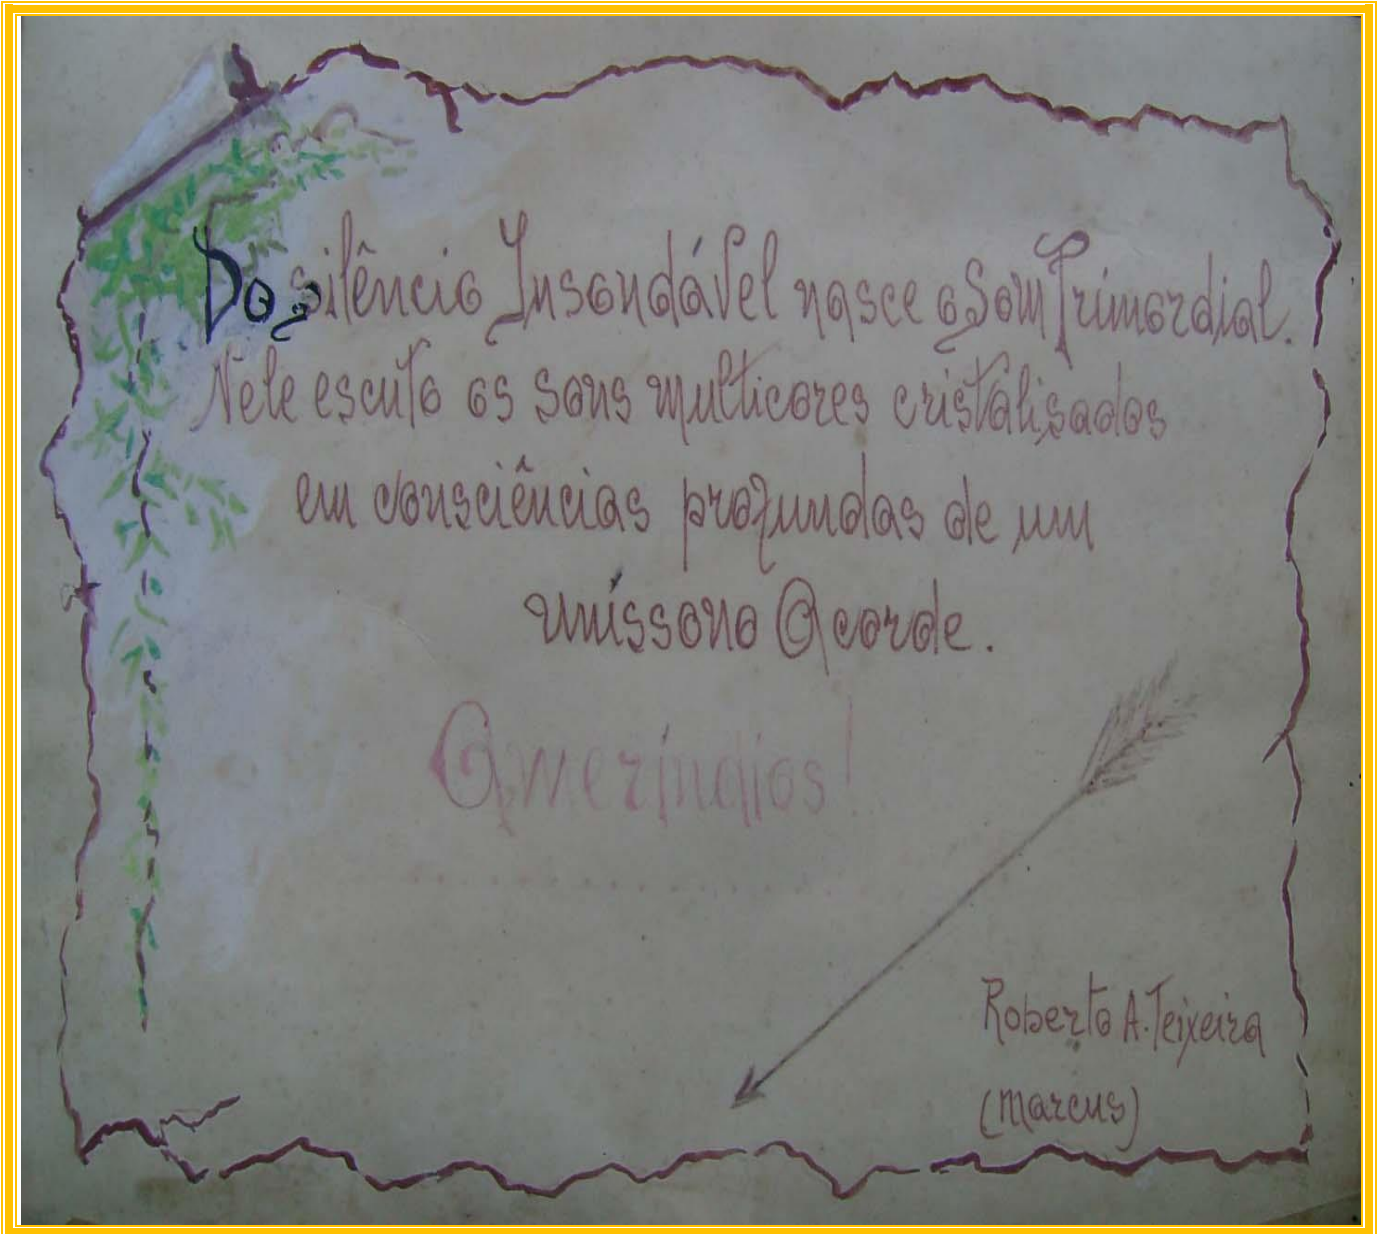 Do silêncio Insondável nasce o Som Primordial.
Nele escuto os sons multicores cristalisados
em consciências profundas de um
uníssono Acorde.
Ameríndios!
Roberto A. Teixeira
(Marcus)